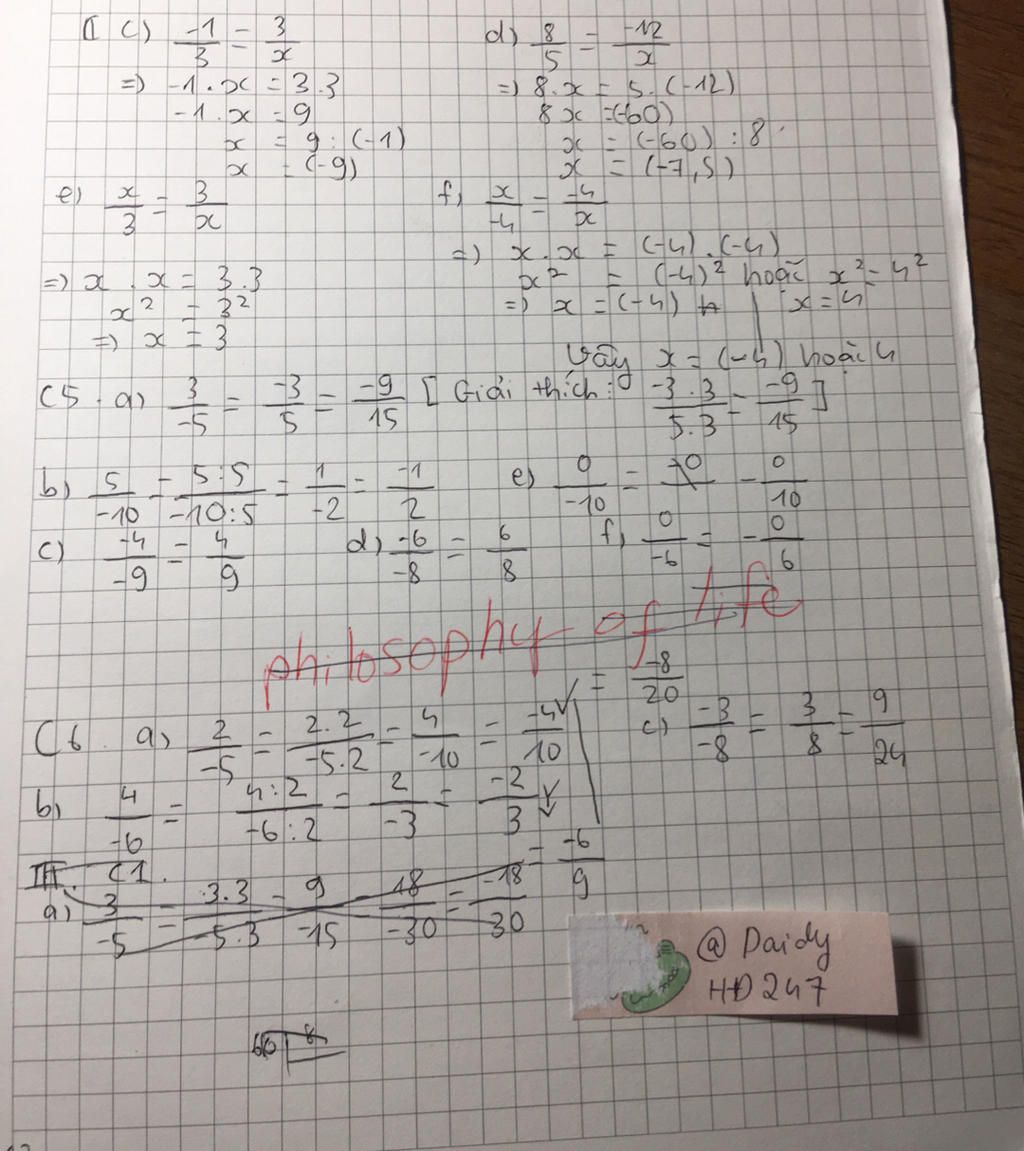 I c) -1/3 = 3/x
=) -1.x = 3.3
-1.x = 9
x = 9 : (-1)
x = (-9)
d) 8/5 = -12/x
=) 8.x = 5.(-12)
8x = (-60)
x = (-60) : 8
x = (-7,5)
e) x/3 = 3/x
=) x.x = 3.3
x² = 3²
=) x = 3
f) x/-4 = -4/x
=) x.x = (-4).(-4)
x² = (-4)² hoặc x² = 4²
=) x = (-4) x = 4
Vậy x = (-4) hoặc 4
C5. a) 3/-5 = -3/5 = -9/15 [Giải thích: -3.3/5.3 = -9/15]
b) 5/-10 = 5:5/-10:5 = 1/-2 = -1/2
e) 0/-10 = -0/10
c) -4/-9 = 4/9
d) -6/-8 = 6/8
f) 0/-6 = -0/6
philosophy of life
C6. a) 2/-5 = 2.2/-5.2 = 4/-10 = -4/10 = -8/20
c) -3/-8 = 3/8 = 9/24
b) 4/-6 = 4:2/-6:2 = 2/-3 = -2/3 = -6/9
III. C1.
a) 3/-5 = 3.3/-5.3 = 9/-15 = 18/-30 = -18/30
@Daidy
HĐ247
8